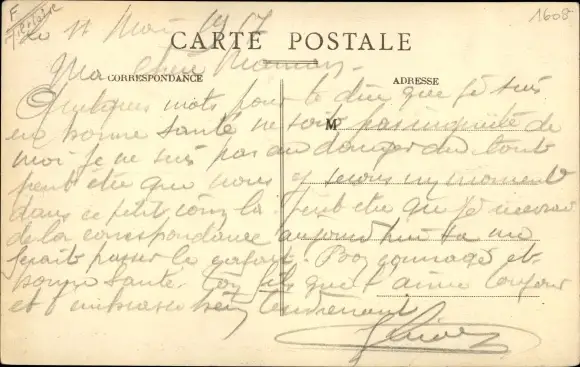 F
1608
le 11 Mai 1917
CARTE POSTALE
Ma chère Maman.
CORRESPONDANCE
ADRESSE
Quelques mots pour te dire que je suis
en bonne santé ne soit pas inquiète de
M
moi je ne suis pas au danger du tout
peut être que nous y serons un moment
dans ce petit coin la. Peut etre que je recevrai
de la correspondance aujourd'hui sa me
ferait passer le cafard. Bon courage et
bonne santé. Ton fils que t'aime toujour
et t'embrasse bien tendrement